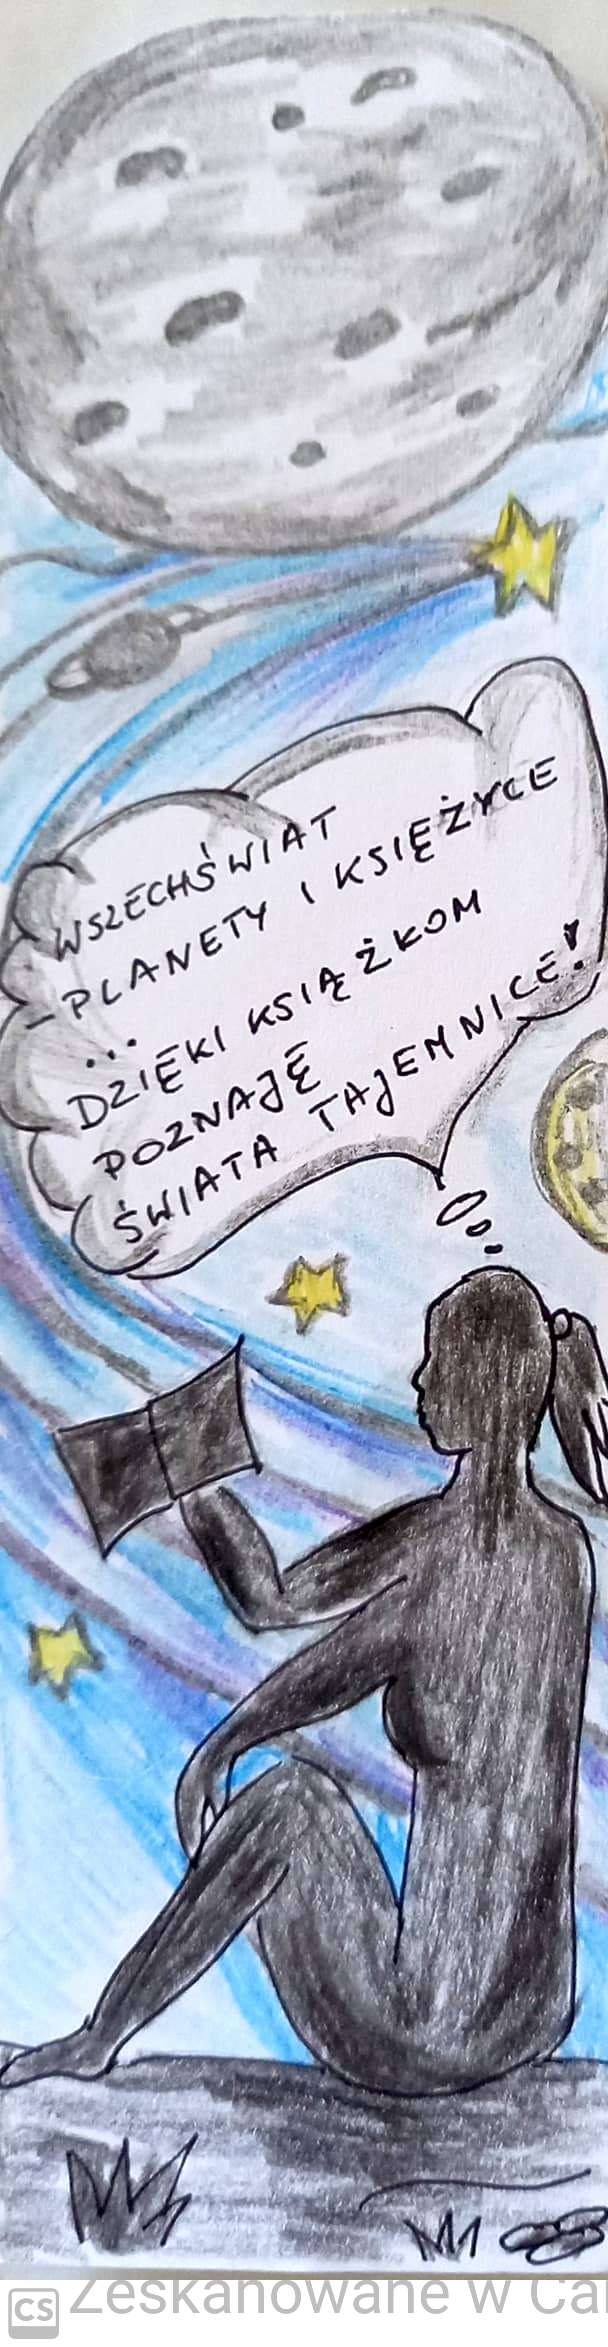 WSZECHŚWIAT
-PLANETY I KSIĘŻYCE
...
DZIĘKI KSIĄŻKOM
POZNAJĘ
ŚWIATA TAJEMNICE!
CS Zeskanowane w Ca